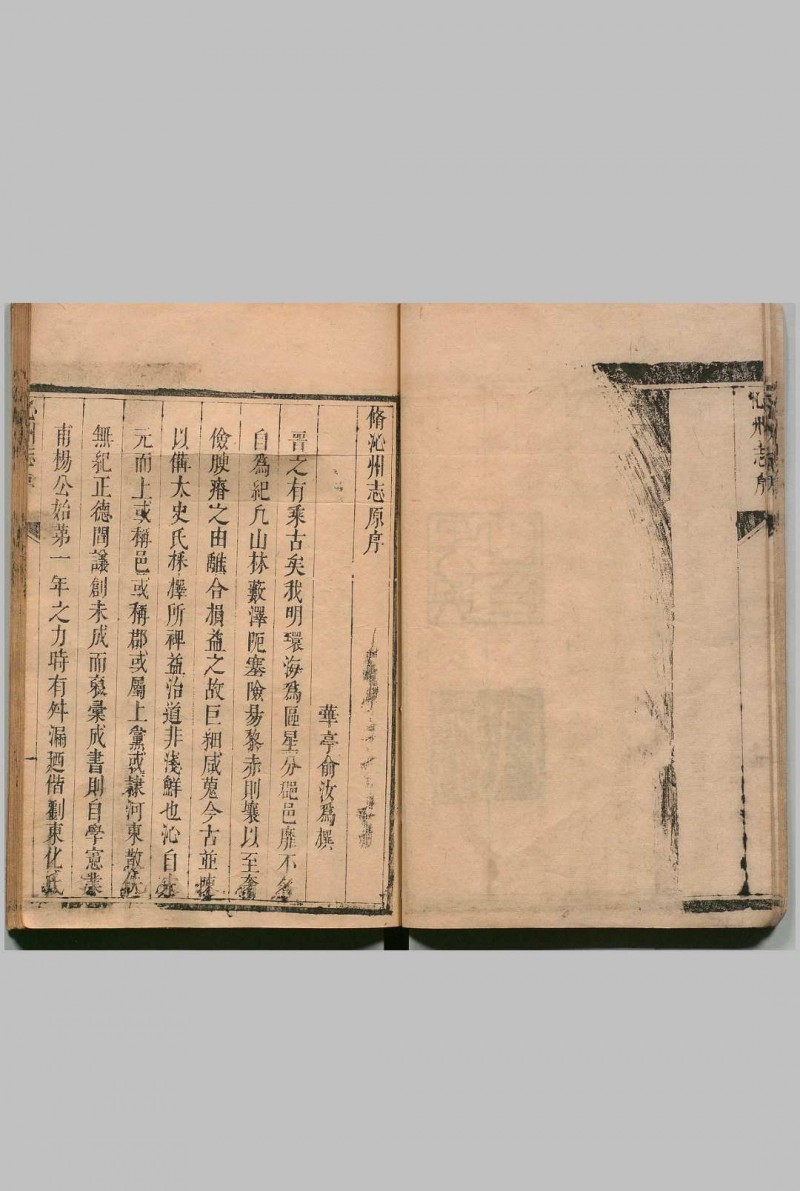 沁州志序
脩沁州志原序
華亭俞汝爲撰
晋之有乘古矣我明環海爲區星分郡邑靡不各
自爲紀凡山林藪澤阨塞險易黎赤則壤以至奢
儉腴瘠之由醨合損益之故巨細咸蒐今古並
以備太史氏採擇所裨益治道非淺鮮也沁自
元而上或稱邑或稱郡或屬上黨或隷河東散
無紀正德間議創未成而裒彙成書則自學憲
甫楊公始第一年之力時有舛漏廼偕劉東化氏
沁州志序